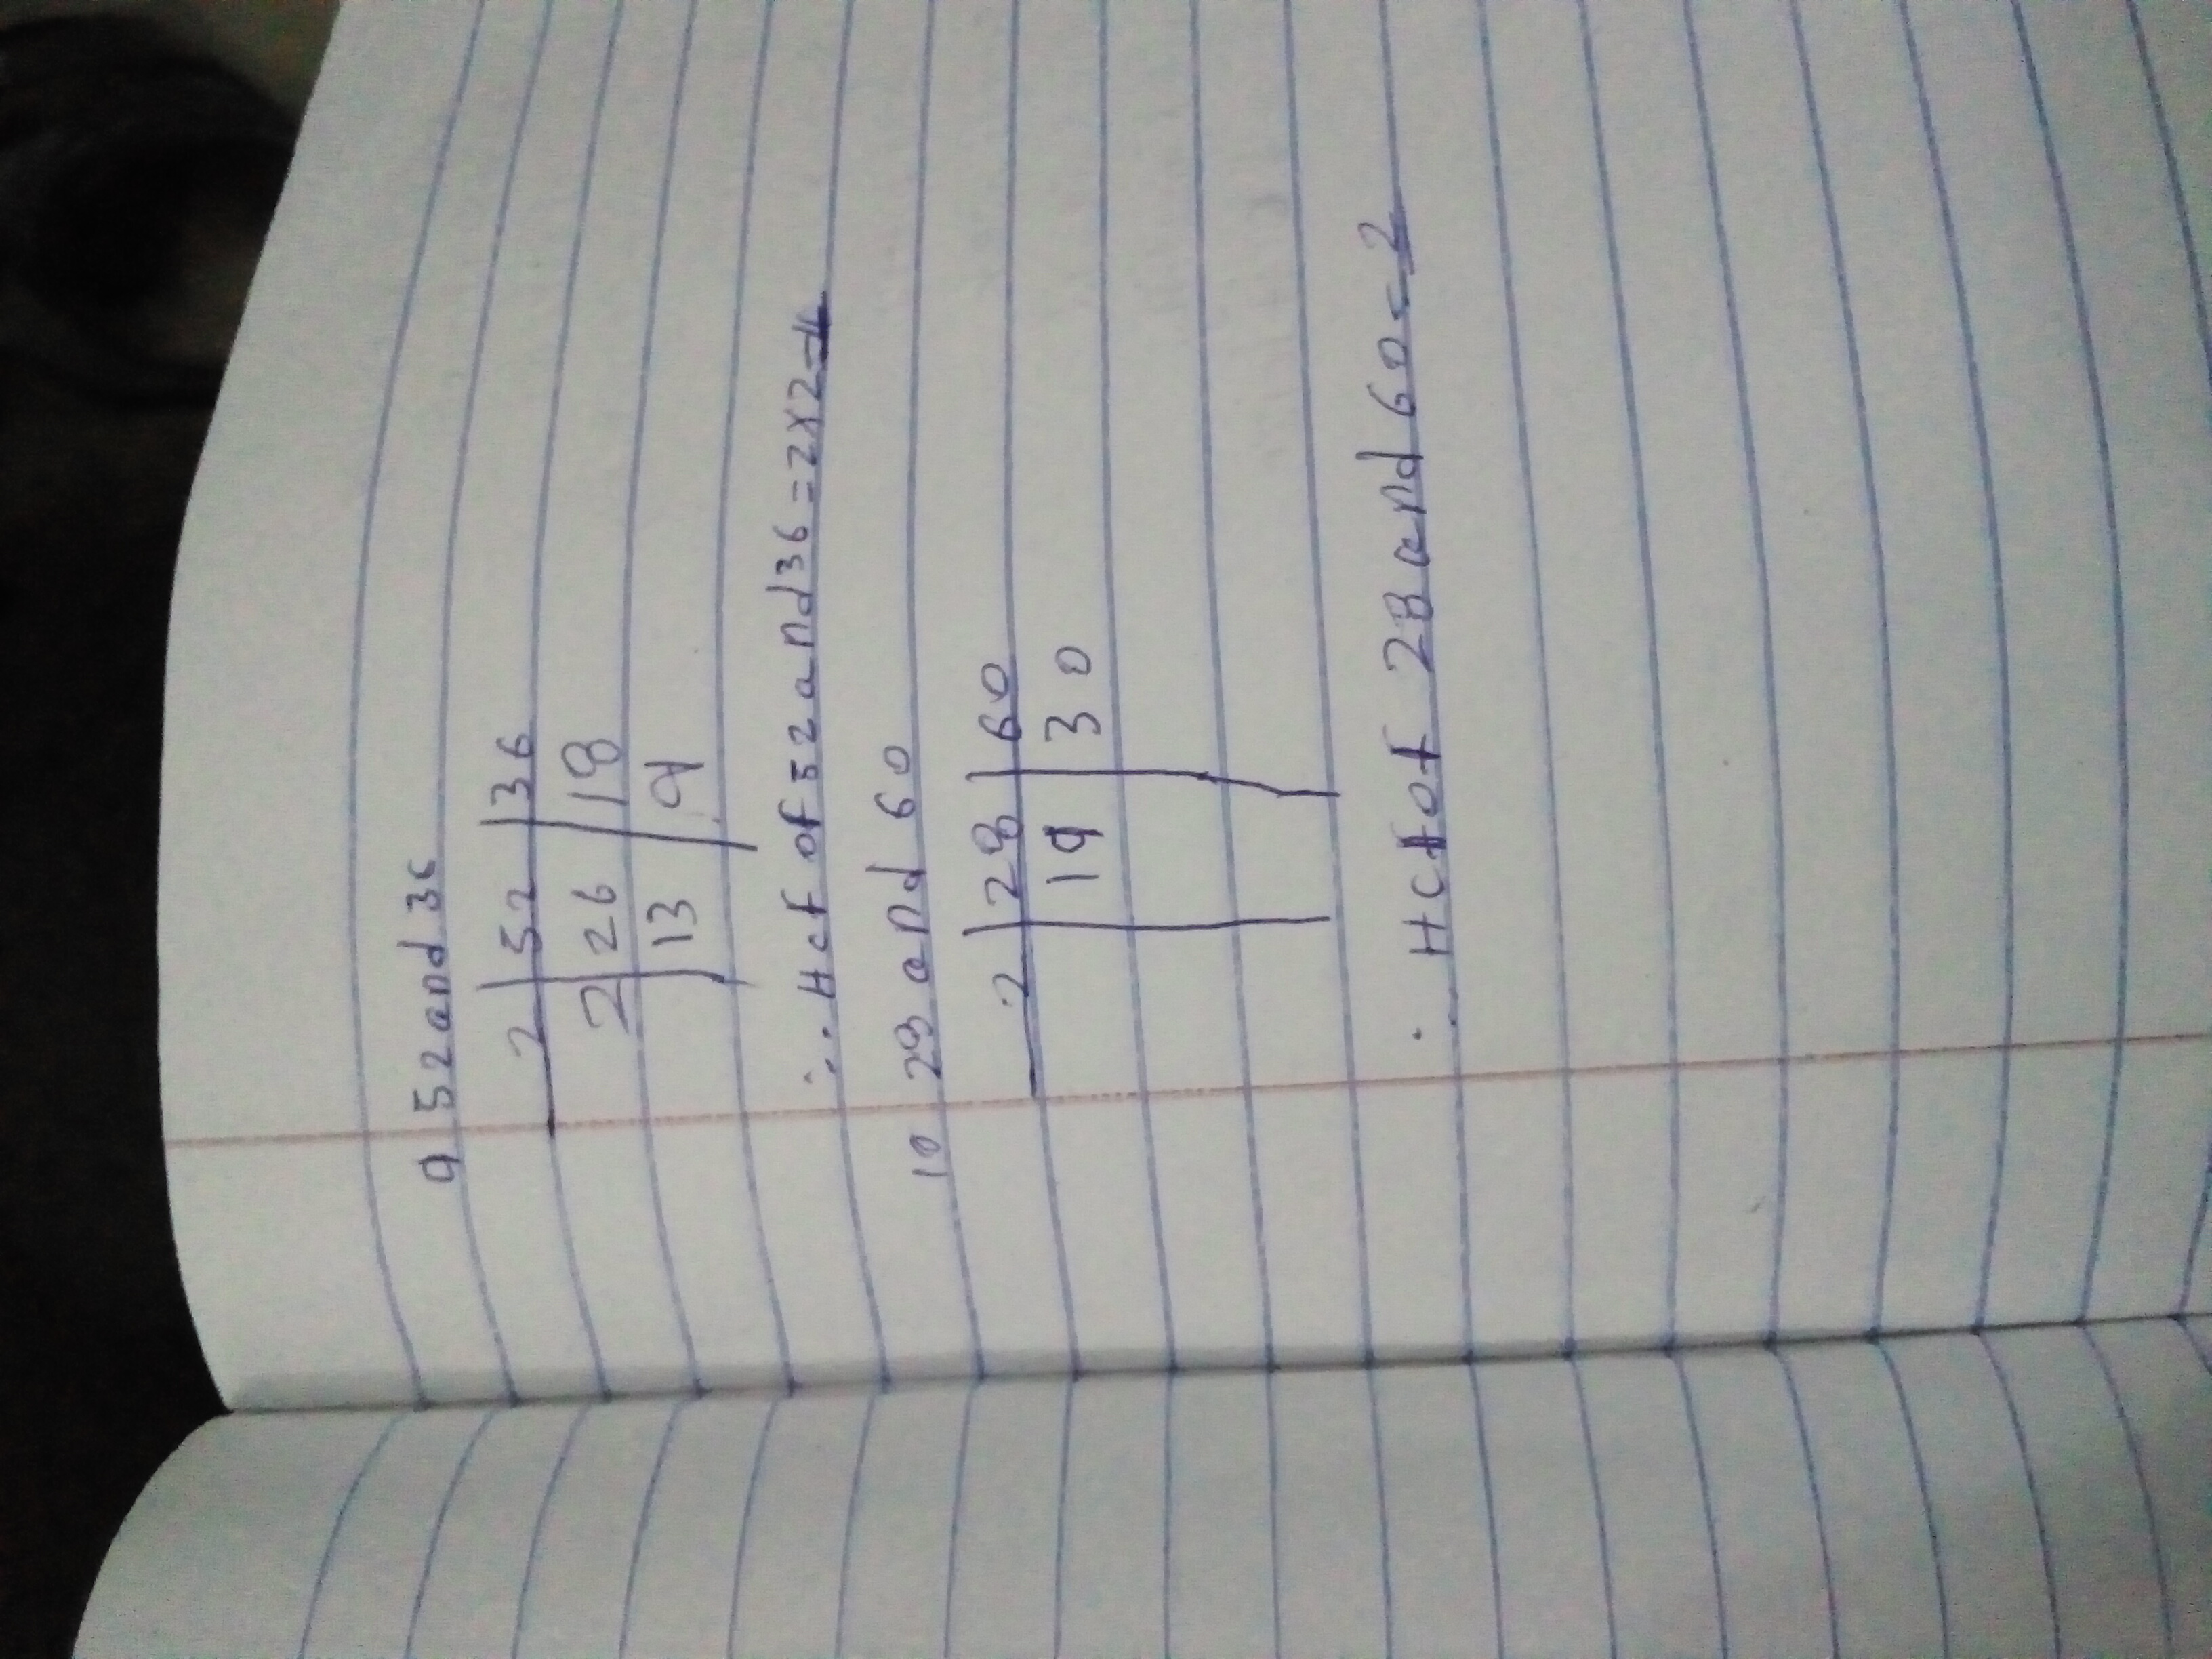 9 52 and 36
2 | 52 | 36
2 | 26 | 18
13 | 9
∴ Hcf of 52 and 36 = 2x2=4
10 28 and 60
2 | 28 | 60
19 | 30
∴ Hcf of 28 and 60 = 2